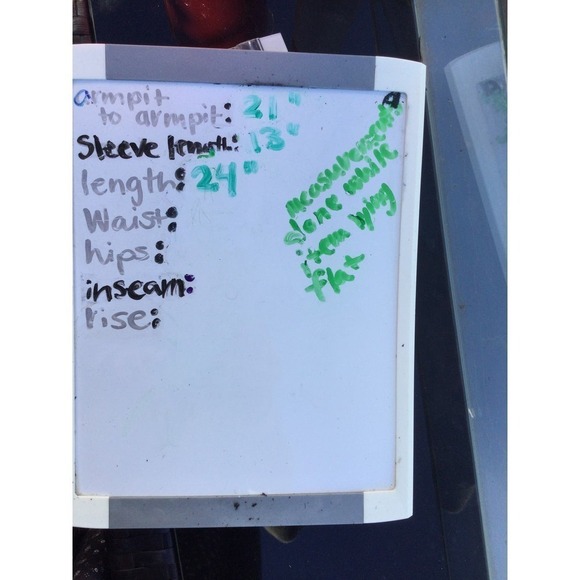 armpit
to armpit: 21"
Sleeve length: 13"
length: 24"
Waist:
hips:
inseam:
rise:
measurements
done while
item lying
flat